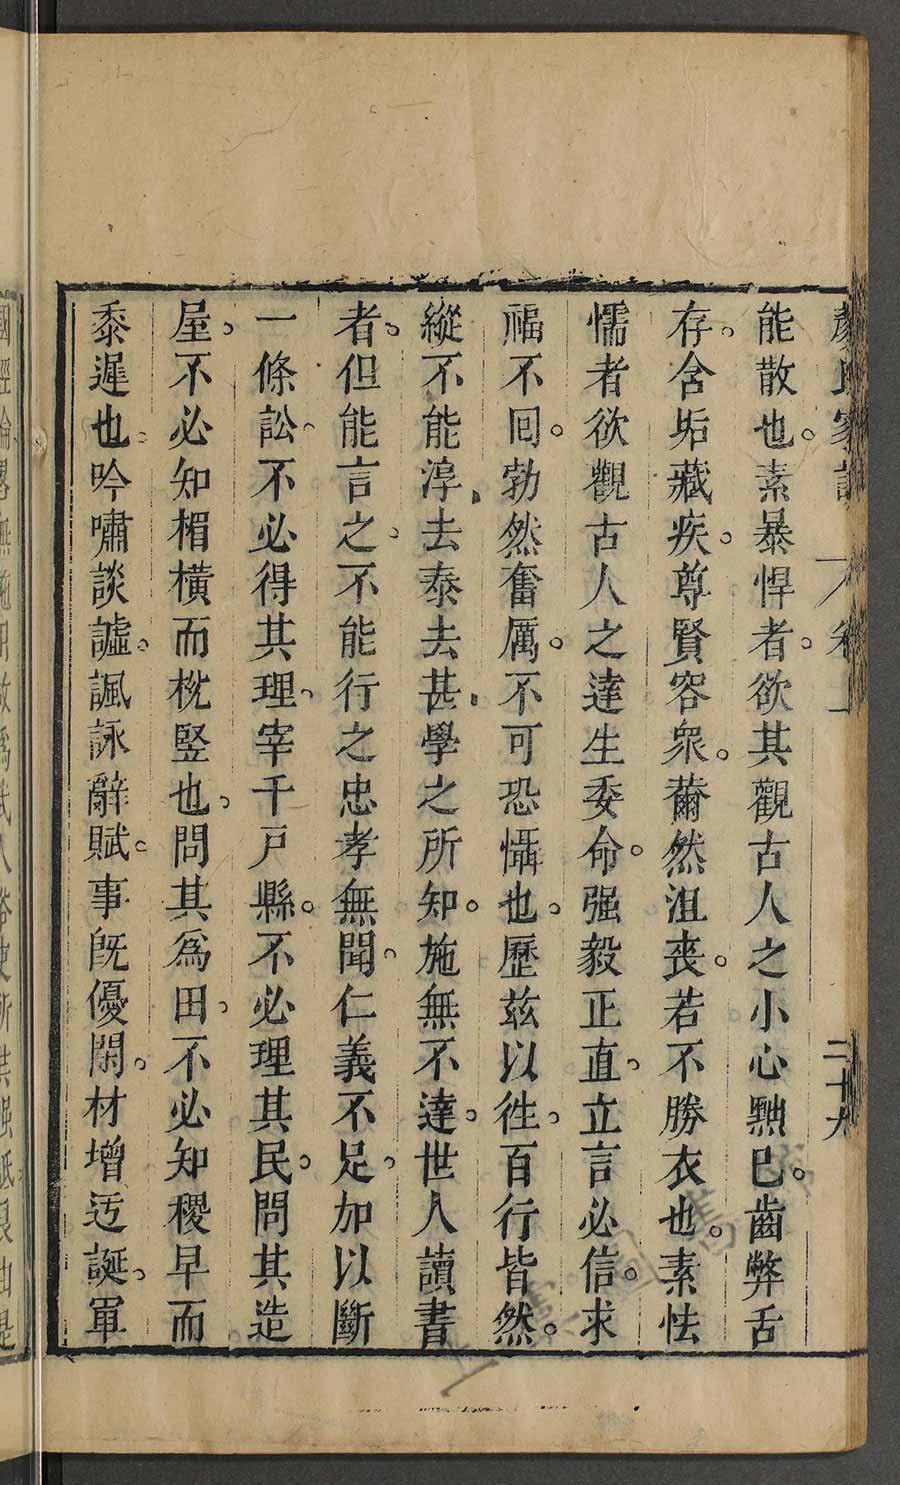 顏氏家訓
卷上
二十九
能散也素暴悍者欲其觀古人之小心黜已齒弊舌
存含垢藏疾尊賢容衆薾然沮喪若不勝衣也素怯
懦者欲觀古人之達生委命强毅正直立言必信求
福不囘勃然奮厲不可恐懾也歷兹以徃百行皆然
縱不能淳去泰去甚學之所知施無不達世人讀書
者但能言之不能行之忠孝無聞仁義不足加以斷
一條訟不必得其理宰千戸縣不必理其民問其造
屋不必知楣橫而梲竪也問其爲田不必知稷早而
黍遲也吟嘯談謔諷詠辭賦事旣優閑材增迃誕軍